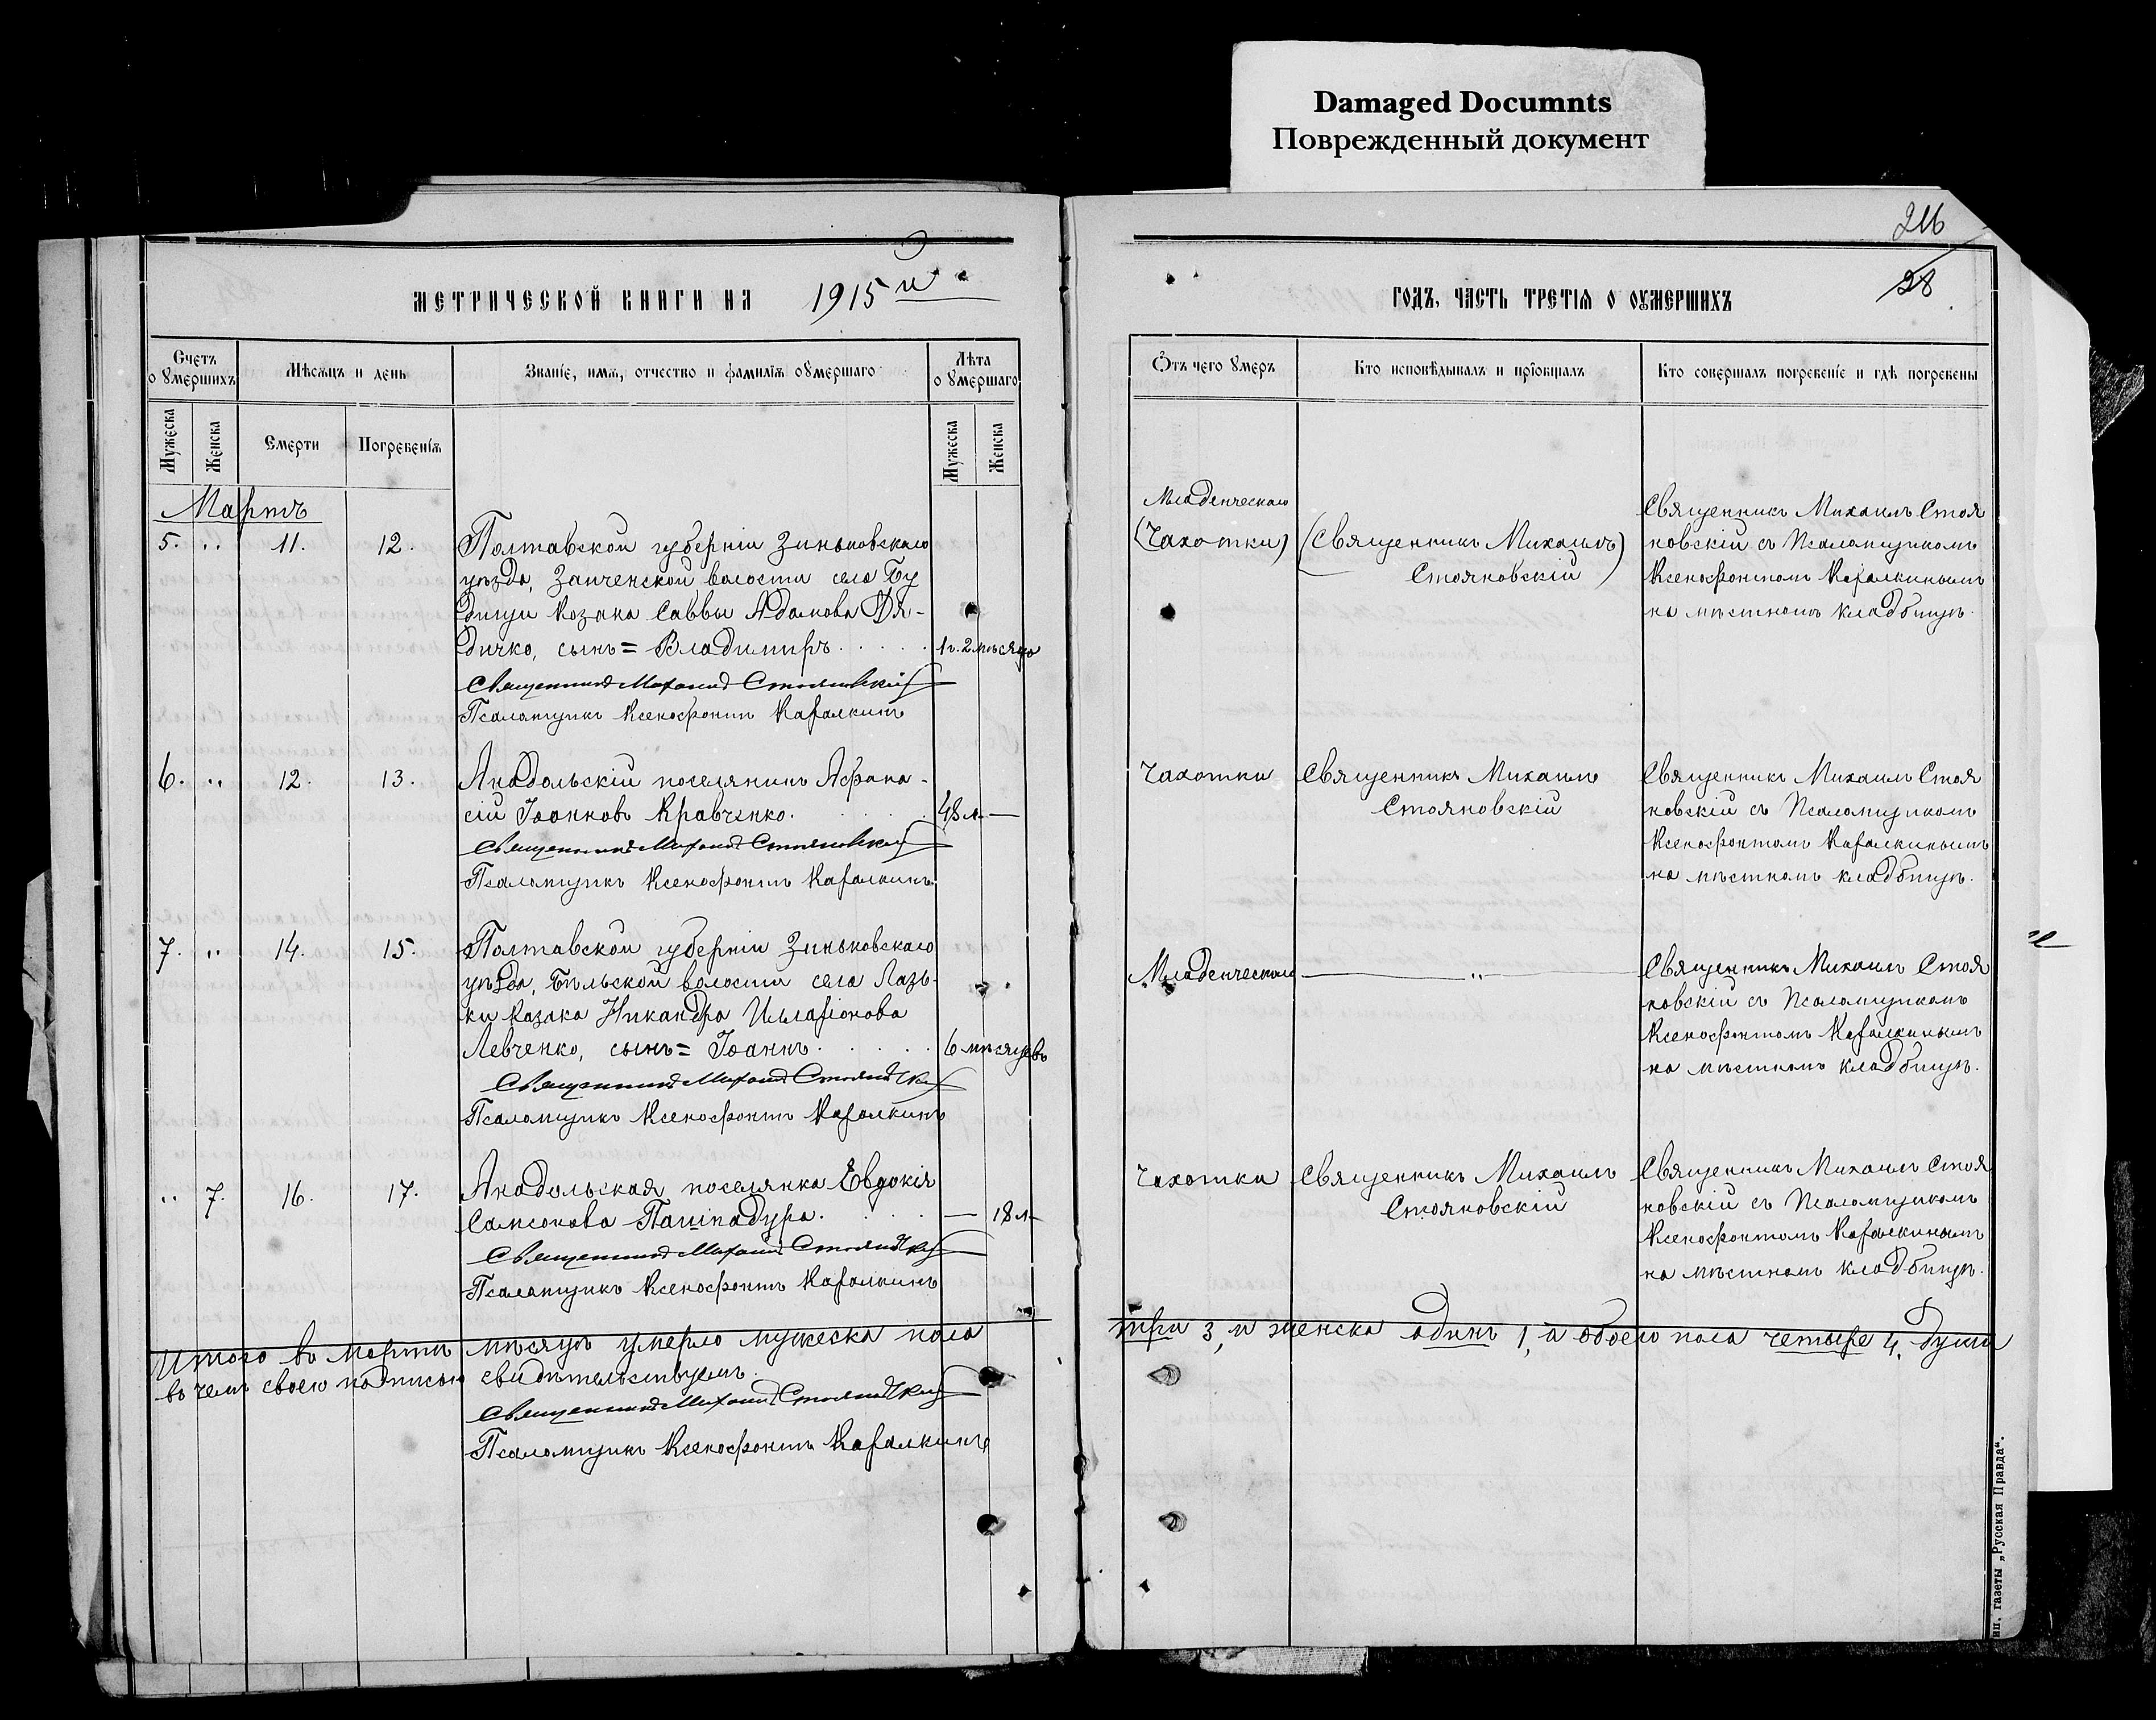 Damaged Documnts
Поврежденный документ
216
28
МЕТРИЧЕСКОЙ КНИГИ НА 1915 й
ГОДЪ, ЧАСТЬ ТРЕТІЯ О ОУМЕРШИХЪ
Счетъ о умершихъ
Мѣсяцъ и день
Званіе, имя, отчество и фамилія оумершаго
Лѣта о умершаго
Мужеска
Женска
Смерти
Погребенія
Мужеска
Женска
Отъ чего умеръ
Кто исповѣдывалъ и пріобщалъ
Кто совершалъ погребеніе и гдѣ погребены
Мартъ
5. „ 11. 12.
Полтавской губерніи Зиньковскаго
уѣзда, Заиченской волости села Бу
дищи Козака Саввы Адамова Дя-
дичко, сынъ = Владимиръ
1 г. 2 мѣсяца
Священникъ Михаилъ Стояновскій
Псаломщикъ Ксенофонтъ Каралкинъ
Младенческаго
(Чахотки)
(Священникъ Михаилъ)
Стояновскій
Священникъ Михаилъ Стоя
новскій съ Псаломщикомъ
Ксенофонтомъ Каралкинымъ
на мѣстномъ кладбищѣ.
6. „ 12. 13.
Анадольскій поселянинъ Афана-
сій Іоанновъ Кравченко.
48 л. —
Священникъ Михаилъ Стояновскій
Псаломщикъ Ксенофонтъ Каралкинъ
Чахотки
Священникъ Михаилъ
Стояновскій
Священникъ Михаилъ Стоя
новскій съ Псаломщикомъ
Ксенофонтомъ Каралкинымъ
на мѣстномъ кладбищѣ.
7. „ 14. 15.
Полтавской губерніи Зиньковскаго
уѣзда, Бѣльской волости села Лазь-
ки Казака Никандра Илларіонова
Левченко, сынъ = Іоаннъ
6 мѣсяцевъ
Священникъ Михаилъ Стояновскій
Псаломщикъ Ксенофонтъ Каралкинъ
Младенческаго
„
Священникъ Михаилъ Стоя
новскій съ Псаломщикомъ
Ксенофонтомъ Каралкинымъ
на мѣстномъ кладбищѣ.
„ 7. 16. 17.
Анадольская поселянка Евдокія
Самсонова Пашпадура.
— 18 л.
Священникъ Михаилъ Стояновскій
Псаломщикъ Ксенофонтъ Каралкинъ
Чахотки
Священникъ Михаилъ
Стояновскій
Священникъ Михаилъ Стоя
новскій съ Псаломщикомъ
Ксенофонтомъ Каралкинымъ
на мѣстномъ кладбищѣ.
Итого въ мартѣ мѣсяцѣ умерло мужеска пола три 3, и женска одинъ 1, а обоего пола четыре 4, души
въ чемъ своею подписью свидѣтельствуемъ.
Священникъ Михаилъ Стояновскій
Псаломщикъ Ксенофонтъ Каралкинъ
газеты „Русская Правда“.